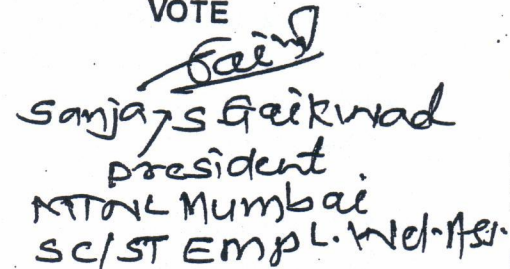 VOTE
Sanjay S Gaikwad
president
MTNL Mumbai
SC/ST EMPL. Wel. Ass.